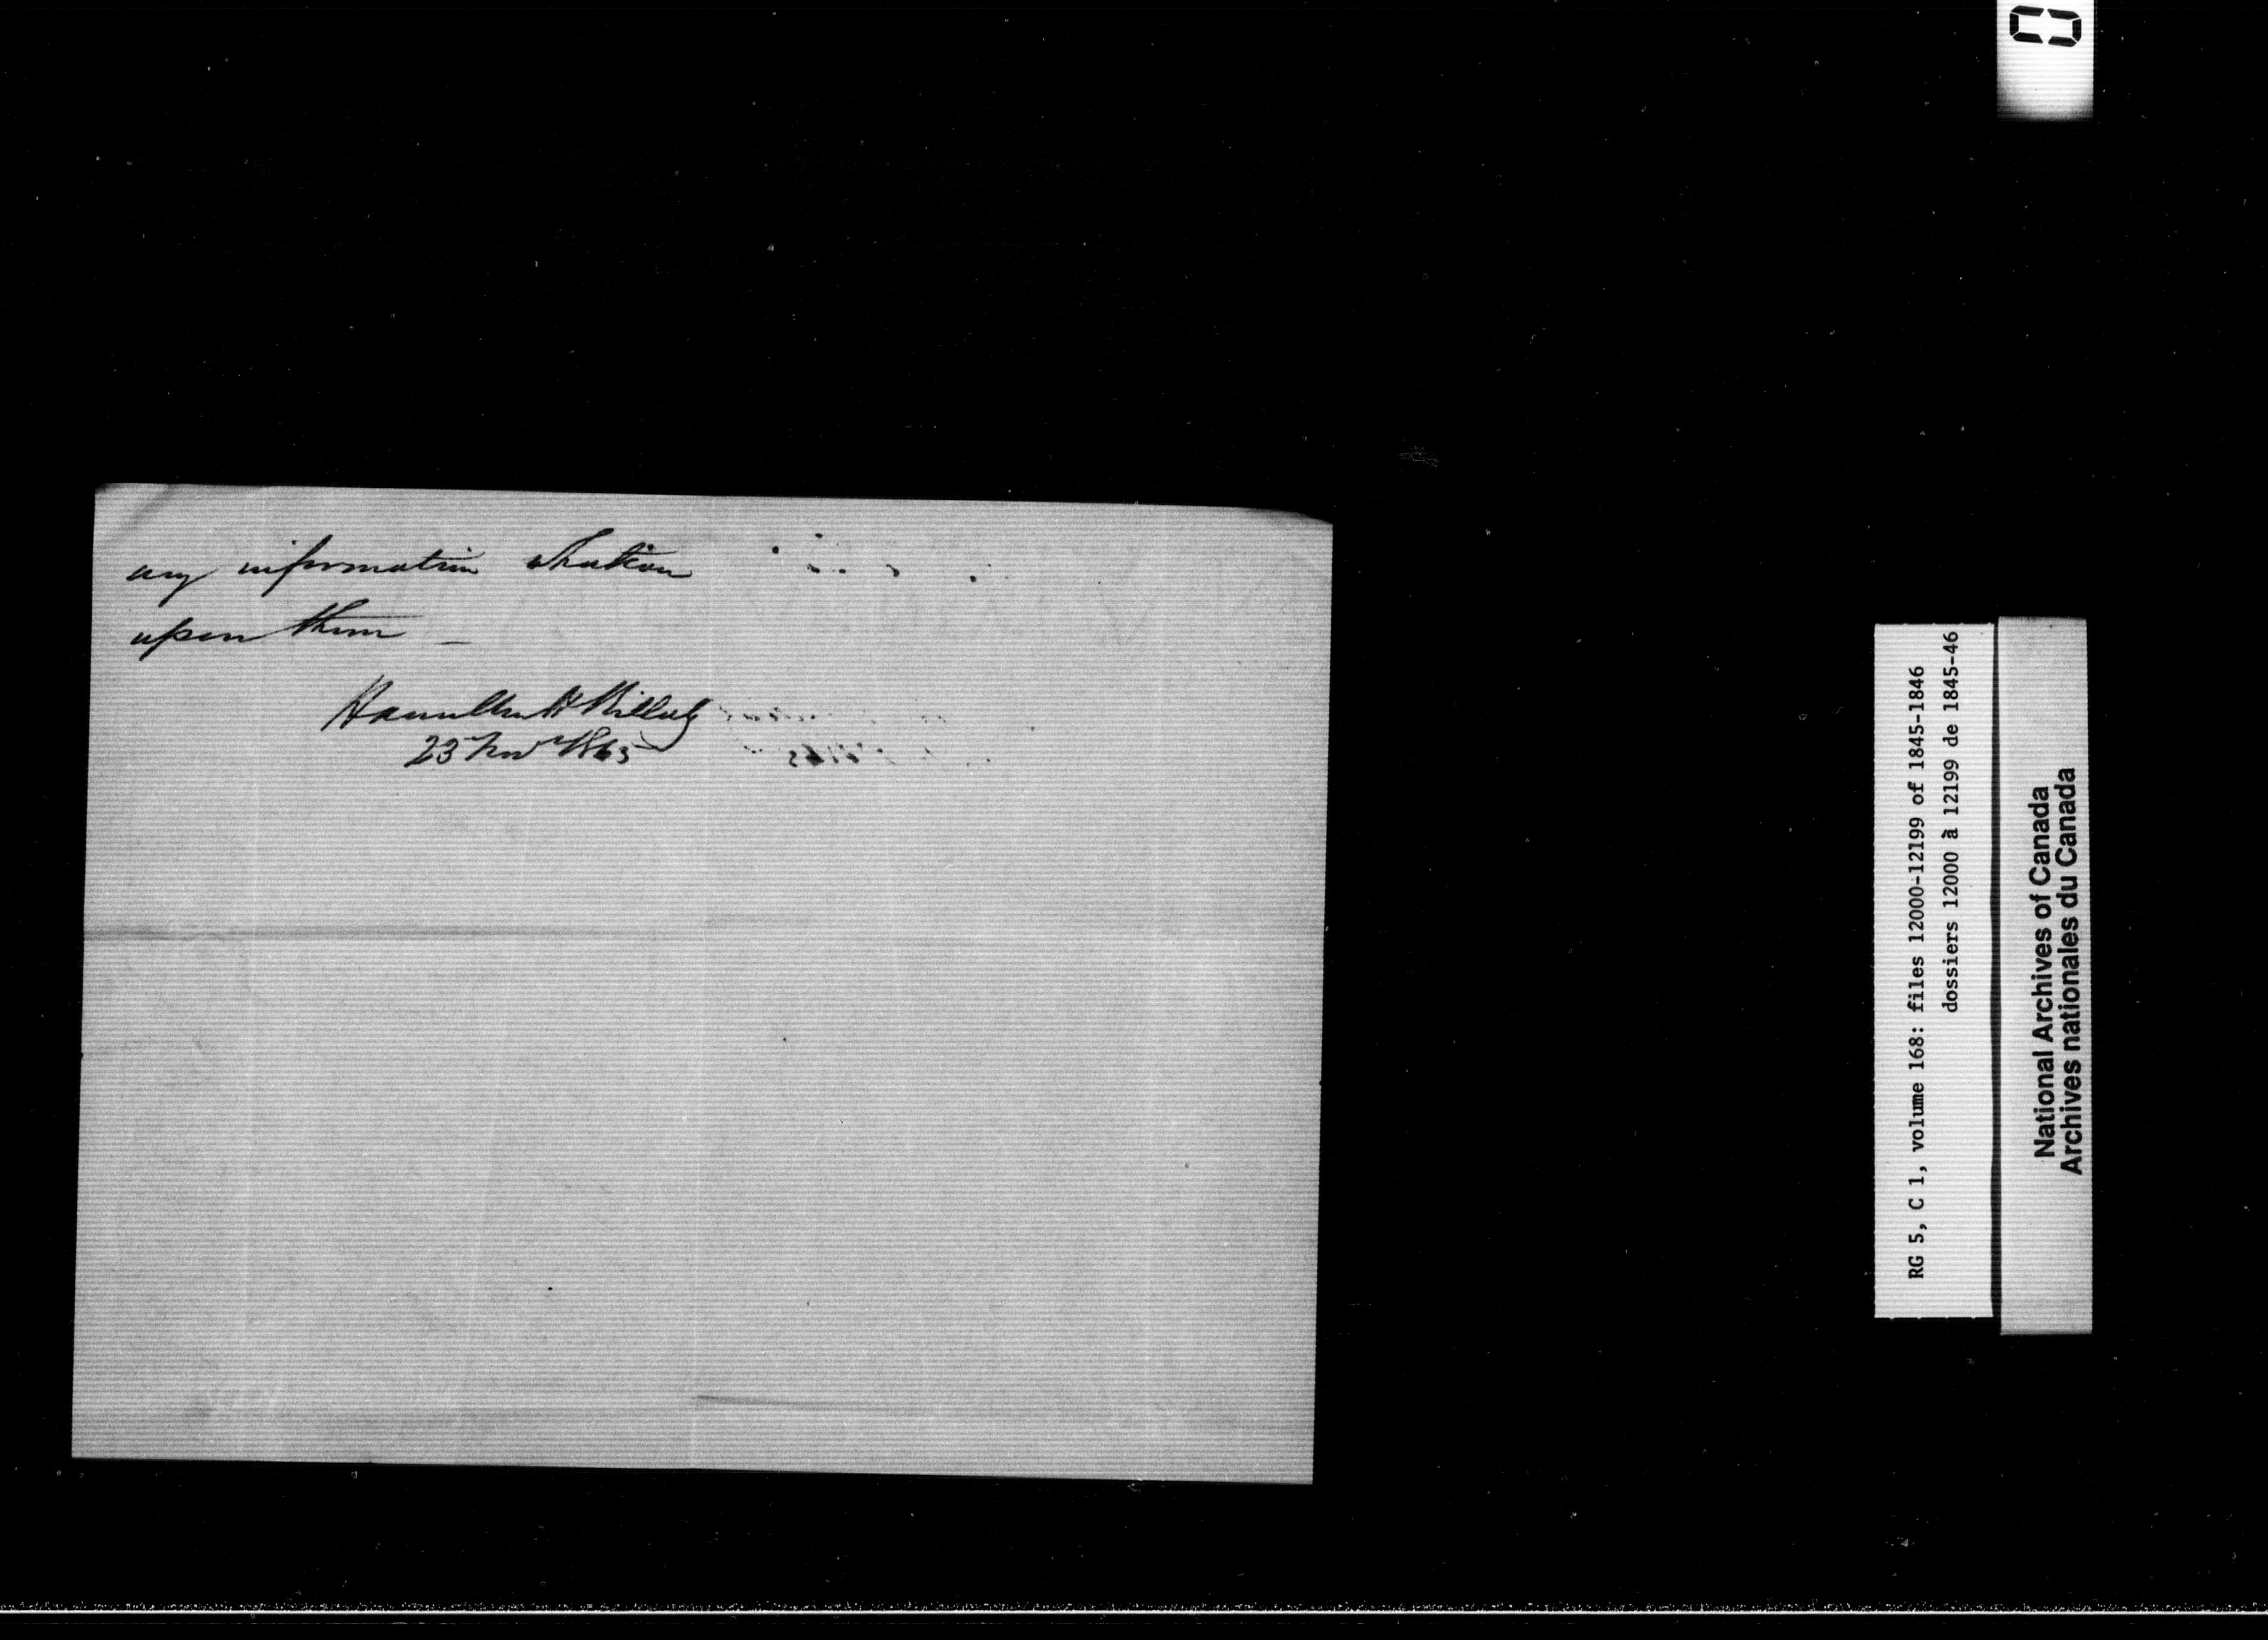 any information whatever
upon them —
Hamilton H Killaly
23 Nov 1845
RG 5, C 1, volume 168: files 12000-12199 of 1845-1846
dossiers 12000 à 12199 de 1845-46
National Archives of Canada
Archives nationales du Canada